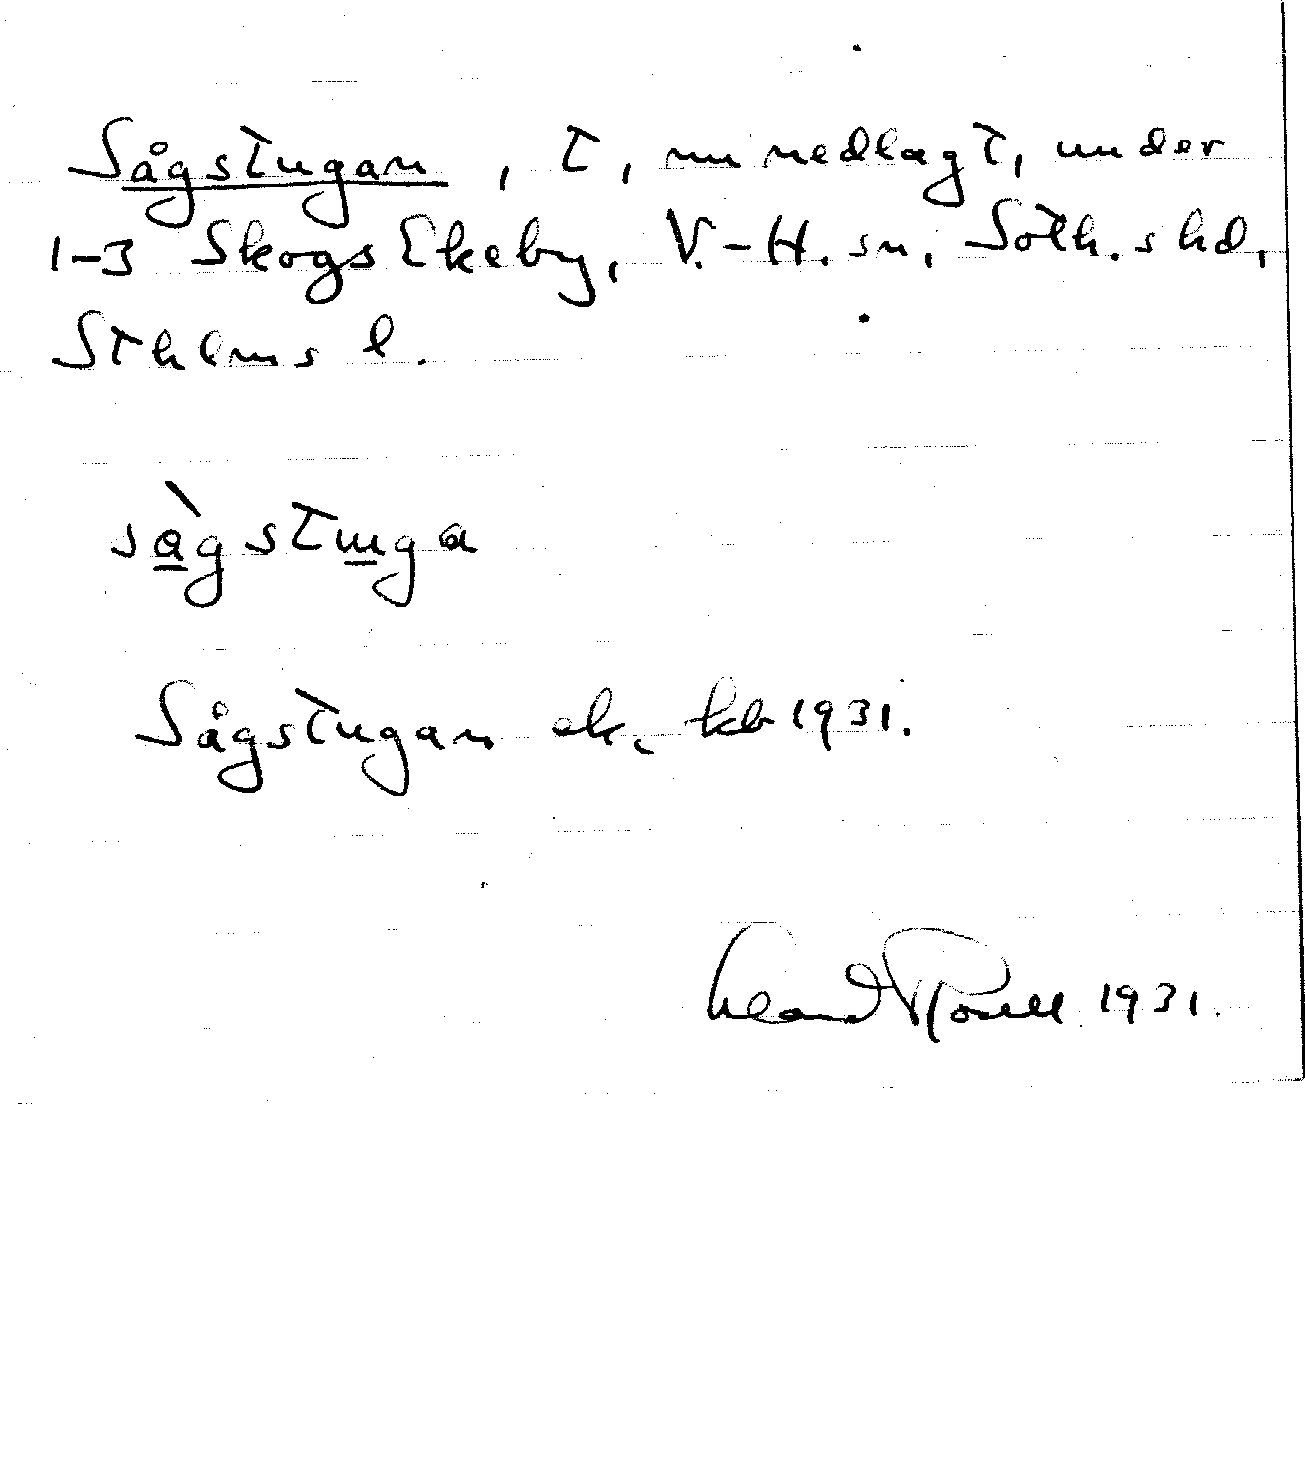 Sågstugan, t, nu nedlagt, under
1-3 Skogs Ekeby, V.-H. sn, Soth.s hd,
Sthlms l.
sàgstuga
Sågstugan ek. kb 1931.
1931.